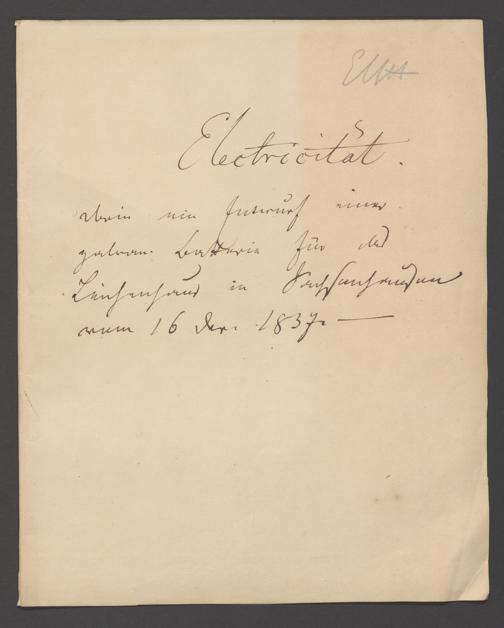 Electricität.
ein Entwurf einer
galvan. Batterie für das
Leichenhaus in Sachsenhausen
vom 16 Dec. 1837. —